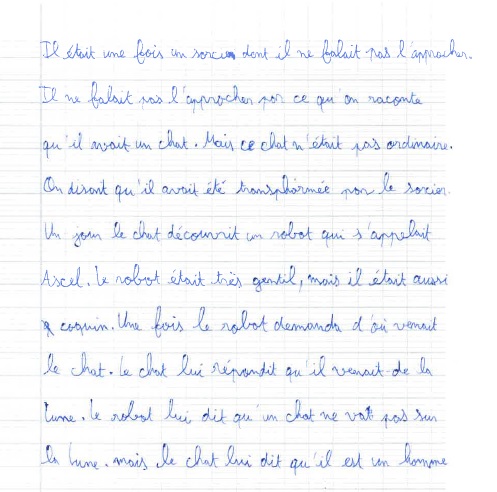 Il était une fois un sorcier dont il ne falait pas l'approcher.
Il ne falait pas l'approcher par ce qu'on raconte
qu'il avait un chat. Mais ce chat n'était pas ordinaire.
On disant qu'il avait été transphormée par le sorcier.
Un jour le chat découvrit un robot qui s'appelait
Ascel. Le robot était très gentil, mais il était aussi
coquin. Une fois le robot demanda d'où venait
le chat. Le chat lui répondit qu'il venait de la
lune. Le robot lui dit qu'un chat ne vat pas sur
la lune. mais le chat lui dit qu'il est un homme